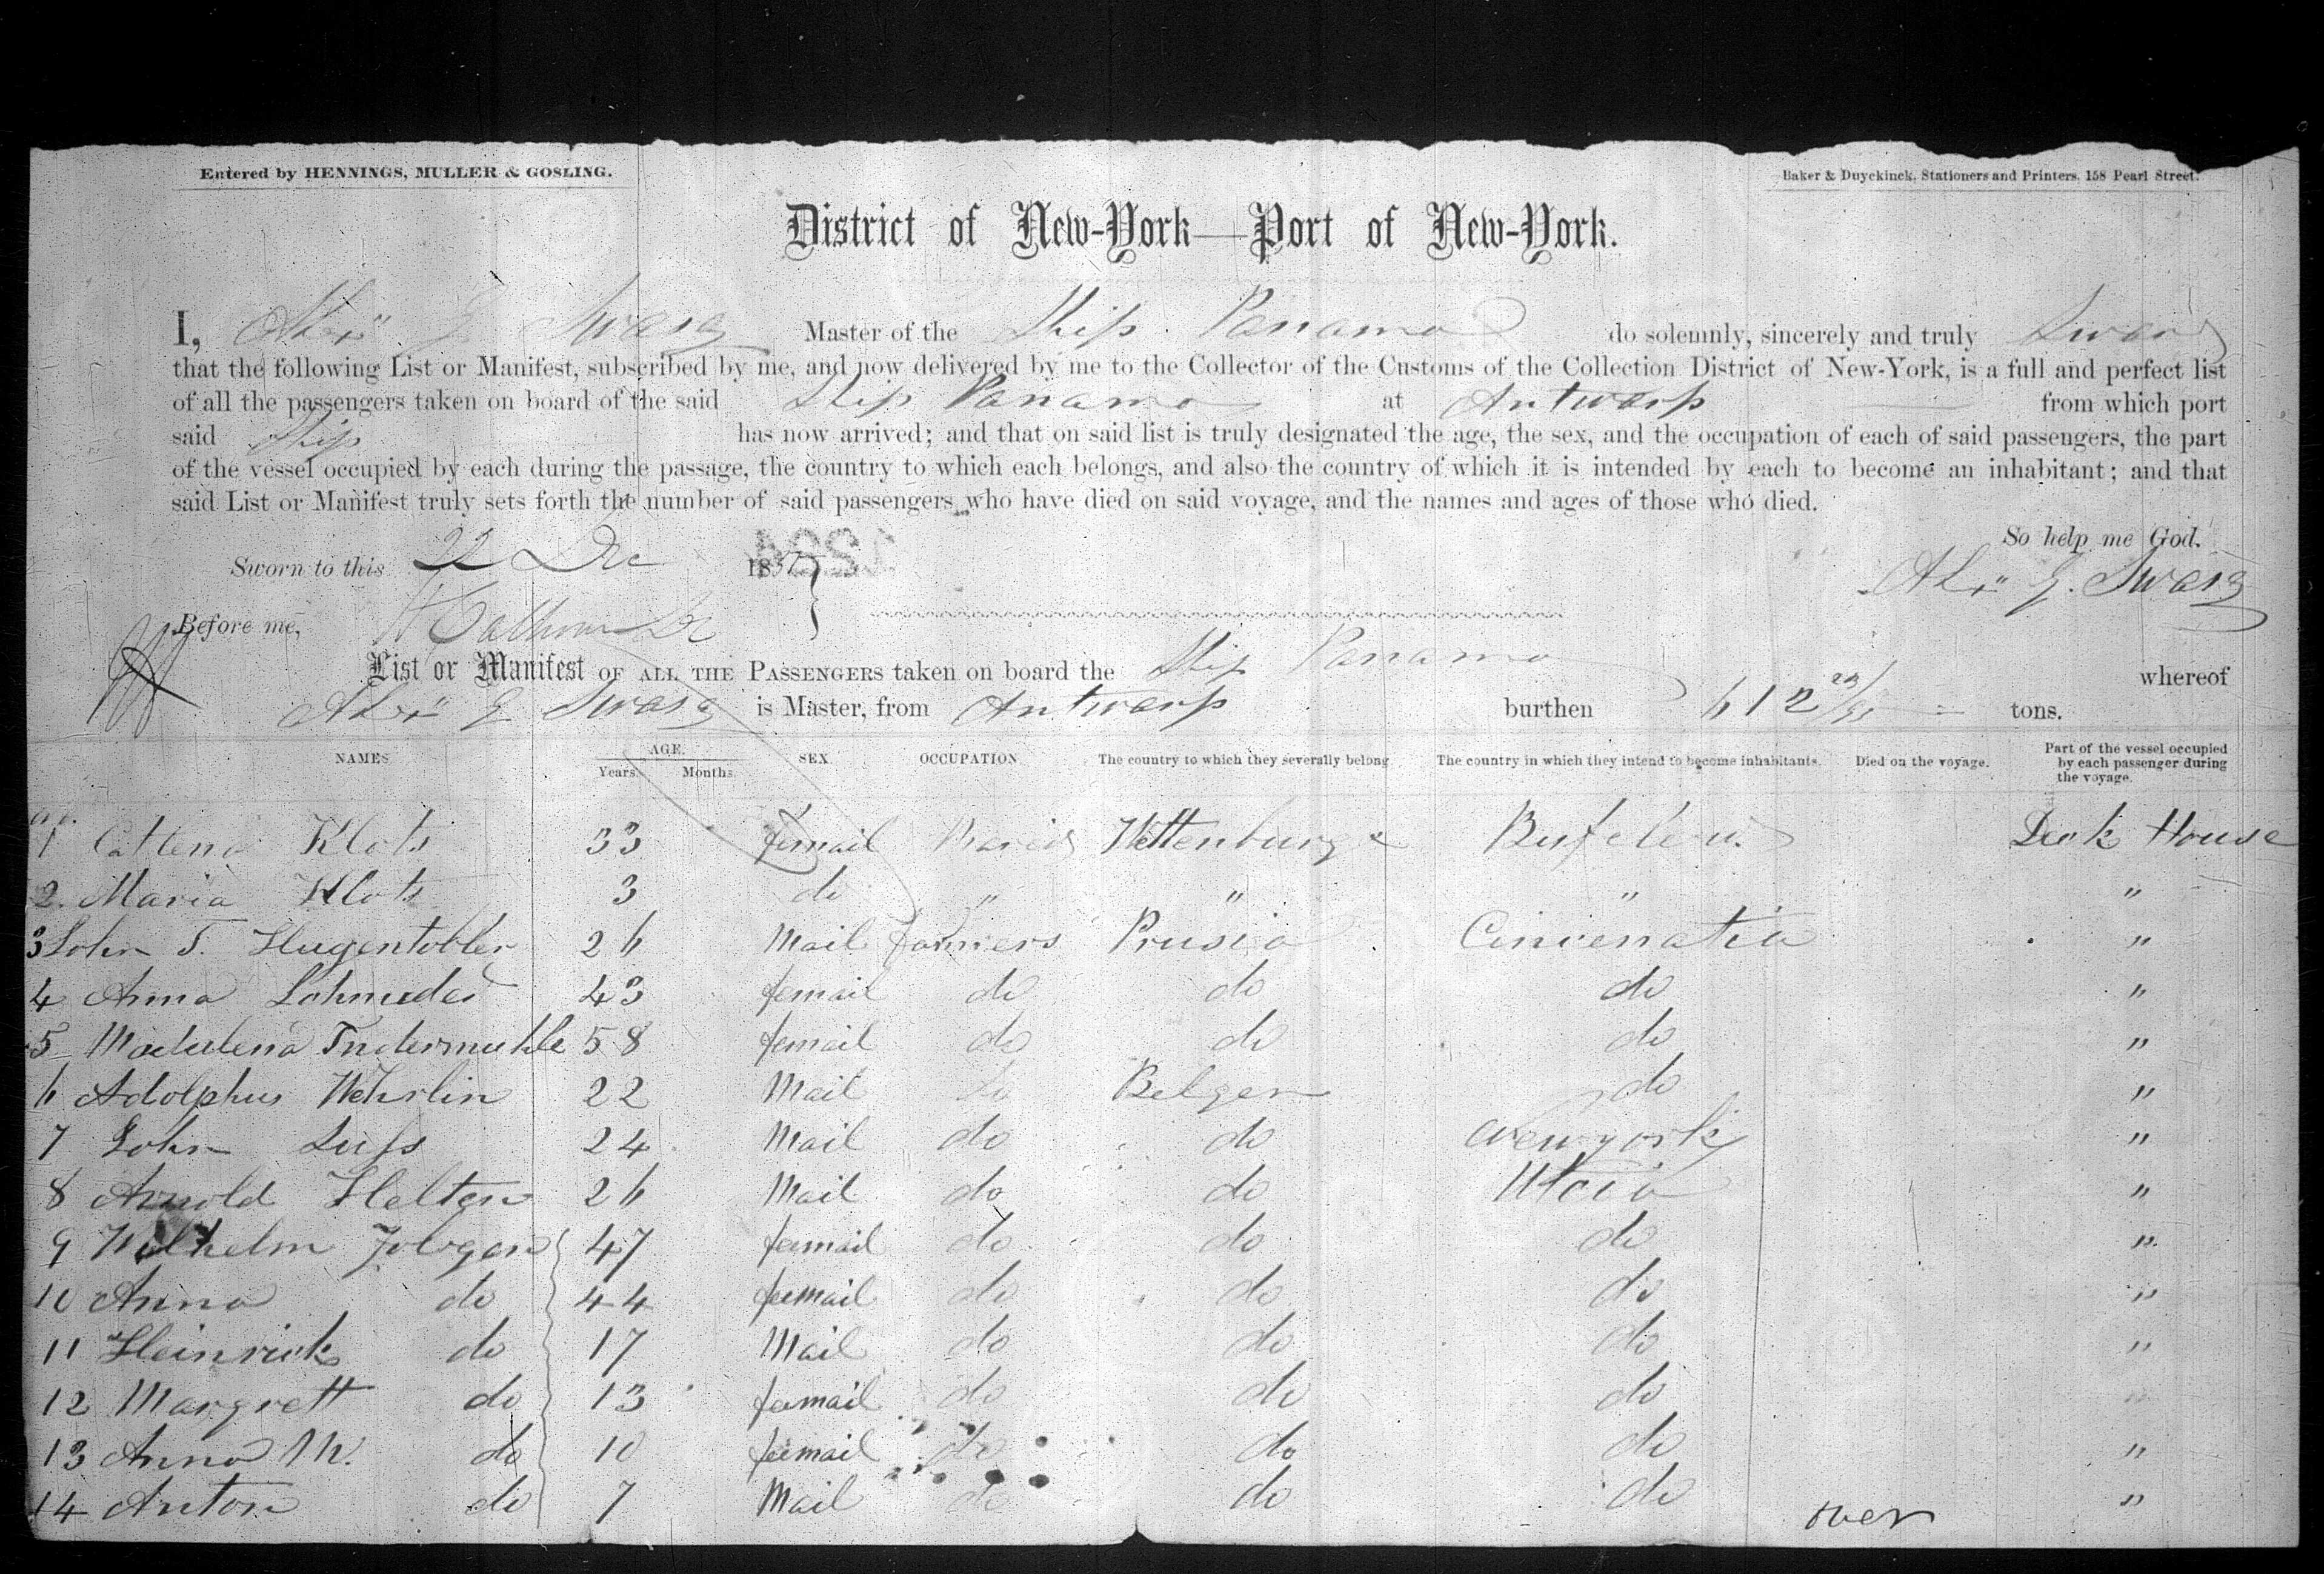 Entered by HENNINGS, MULLER & GOSLING.
Baker & Duyckinck, Stationers and Printers, 158 Pearl Street.
District of New-York—Port of New-York.
I, Alex E Swasey Master of the Ship Panama do solemnly, sincerely and truly Swear
that the following List or Manifest, subscribed by me, and now delivered by me to the Collector of the Customs of the Collection District of New-York, is a full and perfect list
of all the passengers taken on board of the said Ship Panama at Antwerp from which port
said Ship has now arrived; and that on said list is truly designated the age, the sex, and the occupation of each of said passengers, the part
of the vessel occupied by each during the passage, the country to which each belongs, and also the country of which it is intended by each to become an inhabitant; and that
said List or Manifest truly sets forth the number of said passengers who have died on said voyage, and the names and ages of those who died.
So help me God.
Sworn to this 22 Dec 185
1294
Before me,
List or Manifest OF ALL THE PASSENGERS taken on board the Ship Panama whereof
is Master, from Antwerp burthen 612 23/95 tons.
NAMES AGE. Years. Months. SEX. OCCUPATION. The country to which they severally belong. The country in which they intend to become inhabitants. Died on the voyage. Part of the vessel occupied by each passenger during the voyage.
1 Catlena Klots 33 femail Wettenburge Bufelow Deck House
2. Maria Klots 3 do " " " "
3 John T. Hugentobler 26 Mail farmers Prusia Cincenatia "
4 Anna Schnieder 43 femail do do do "
5 Madalena Indermuhle 58 femail do do do "
6 Adolphus Wehrlin 22 Mail do Belgen do "
7 John Luss 24 Mail do do New york "
8 Arnold Helten 26 Mail do do Utcia "
9 Wilhelm Jobgen 47 feemail do do do "
10 Anna do 44 feemail do do do "
11 Heinrick do 17 Mail do do do "
12 Margrett do 13 feemail do do do "
13 Anna M. do 10 feemail do do do "
14 Anton do 7 Mail do do do "
over